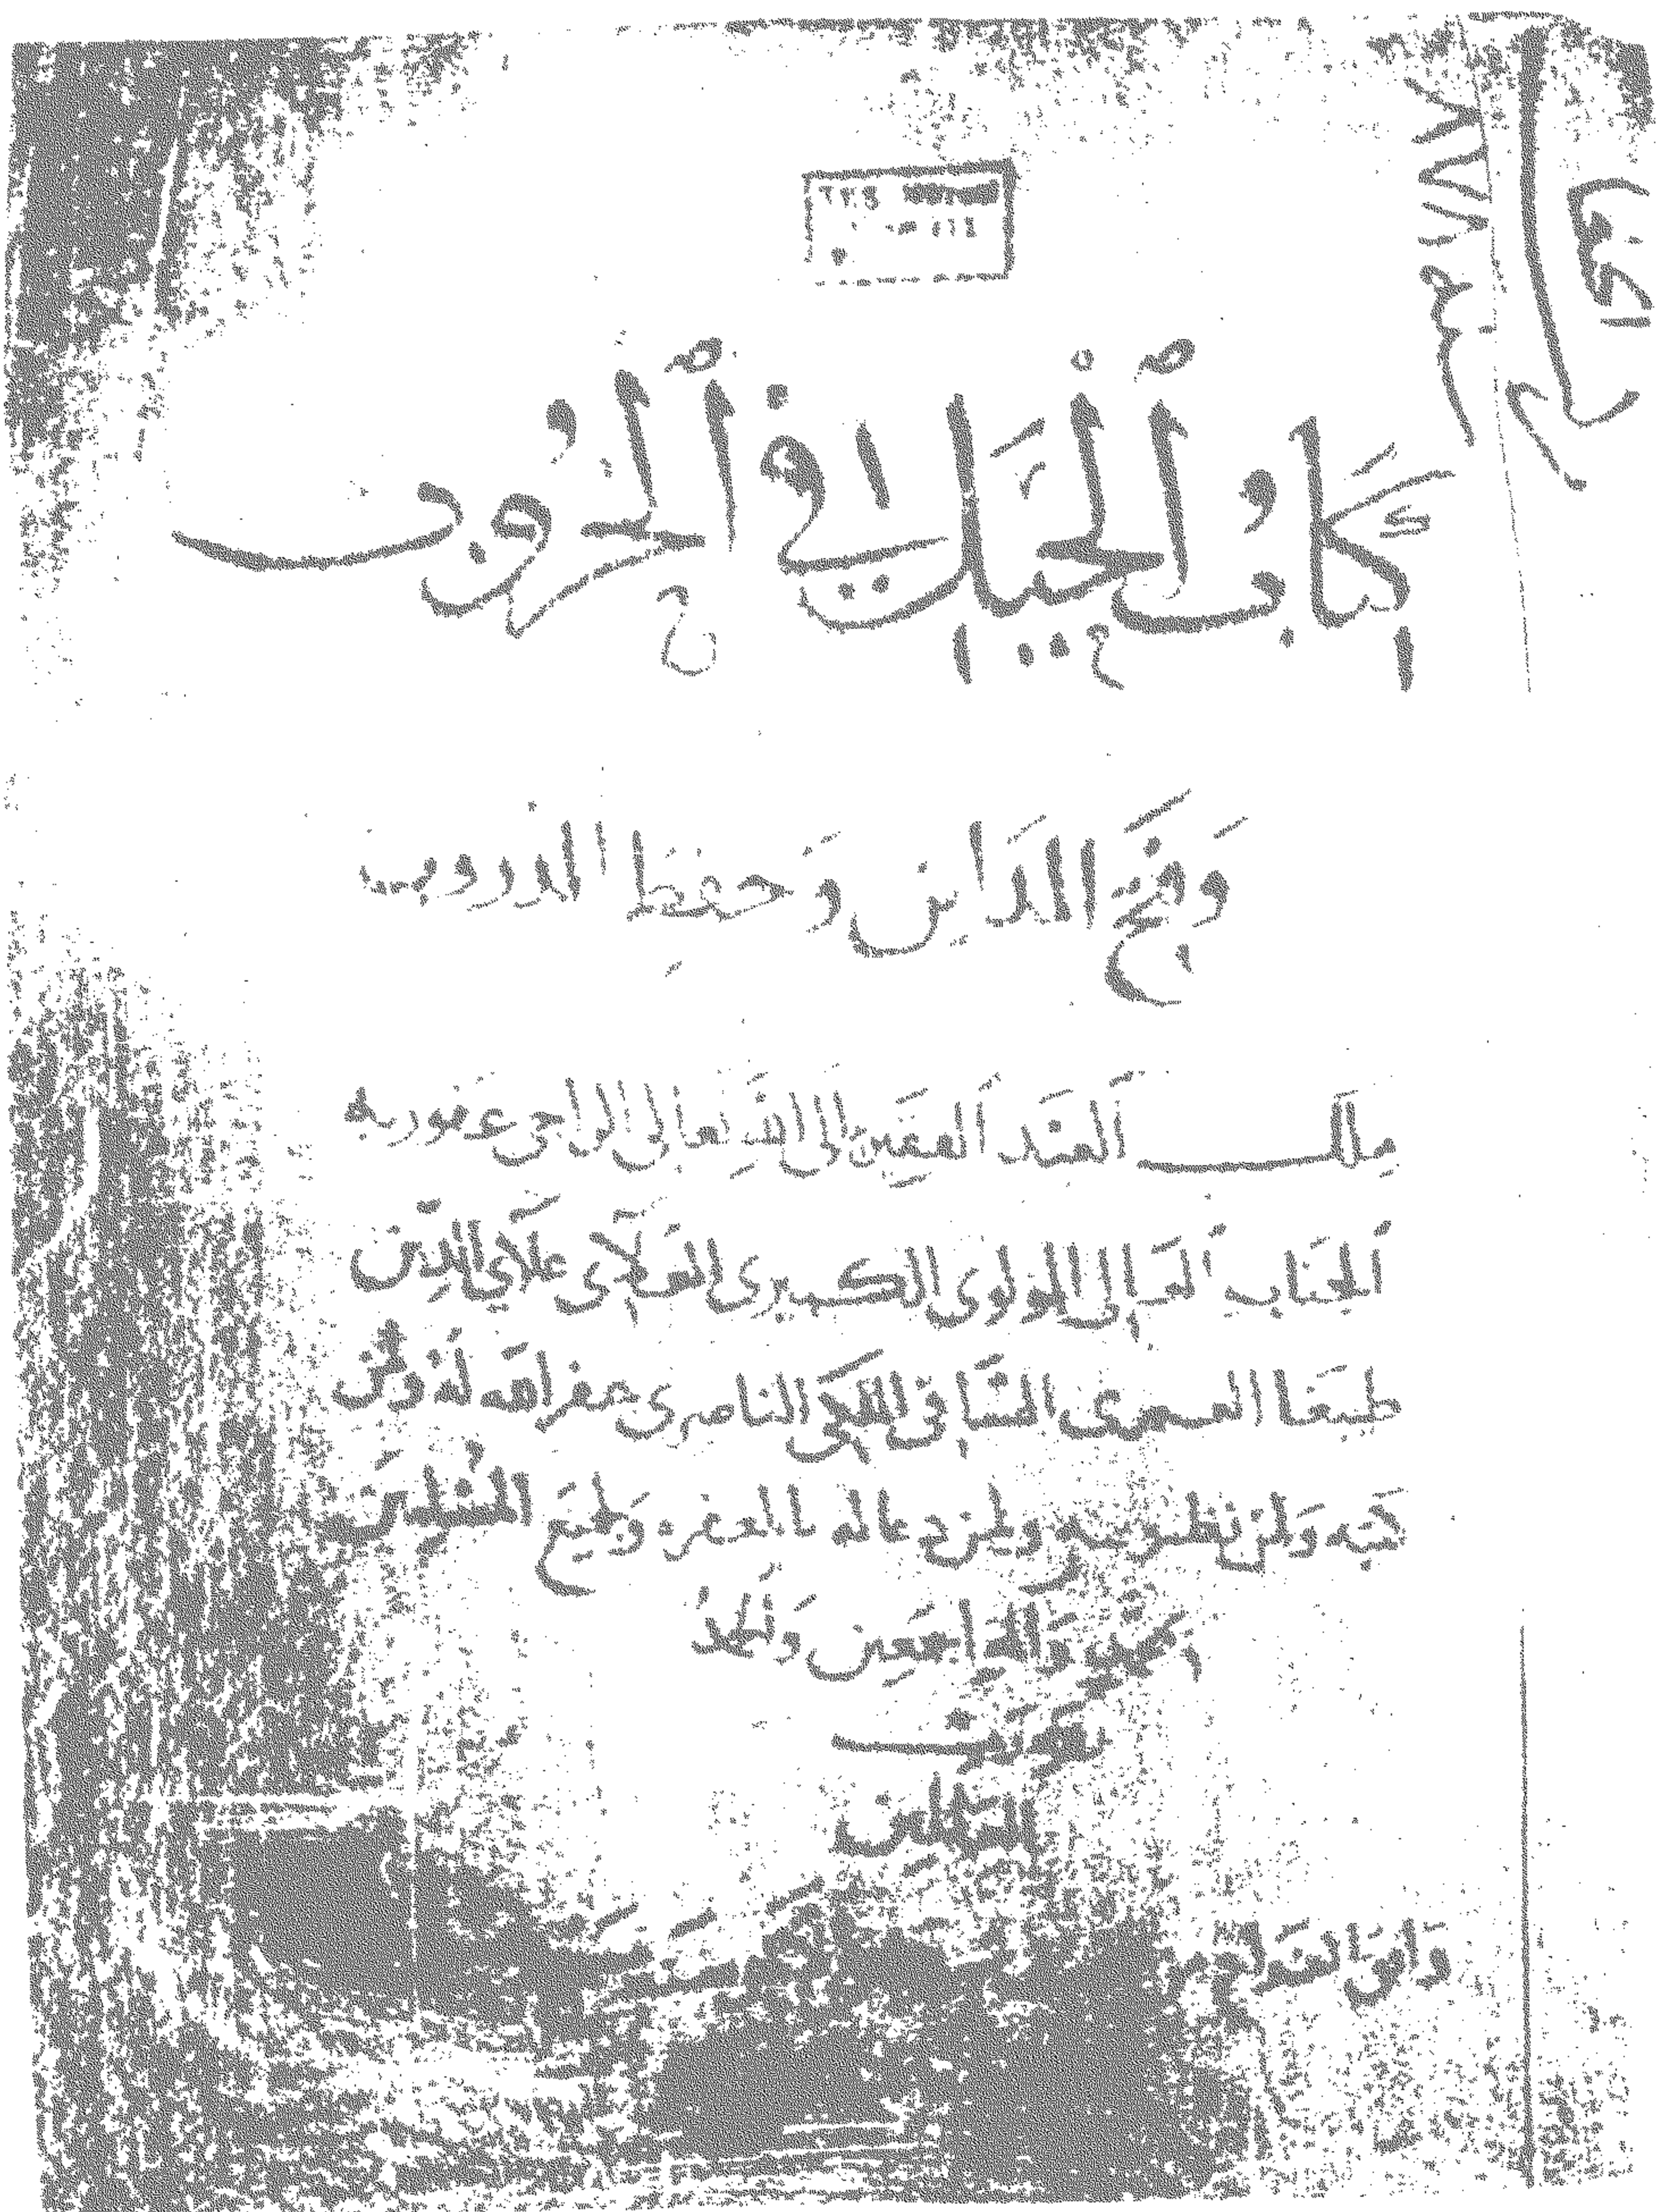 كتاب الحيل في الحروب
وفتح المداين وحفظ الدروب
ملك العبد الفقير إلى الله تعالى الراجي عفو ربه
الجناب العالي المولوي الكبيري العلاي علاي الدين
طيبغا العمري الساقي الملكي الناصري غفر الله له ولمن
كتبه ولمن نظر فيه ولمن دعا له بالمغفرة ولجميع المسلمين
بمحمد واله اجمعين والحمد
لله رب
العالمين
وافق الفراغ